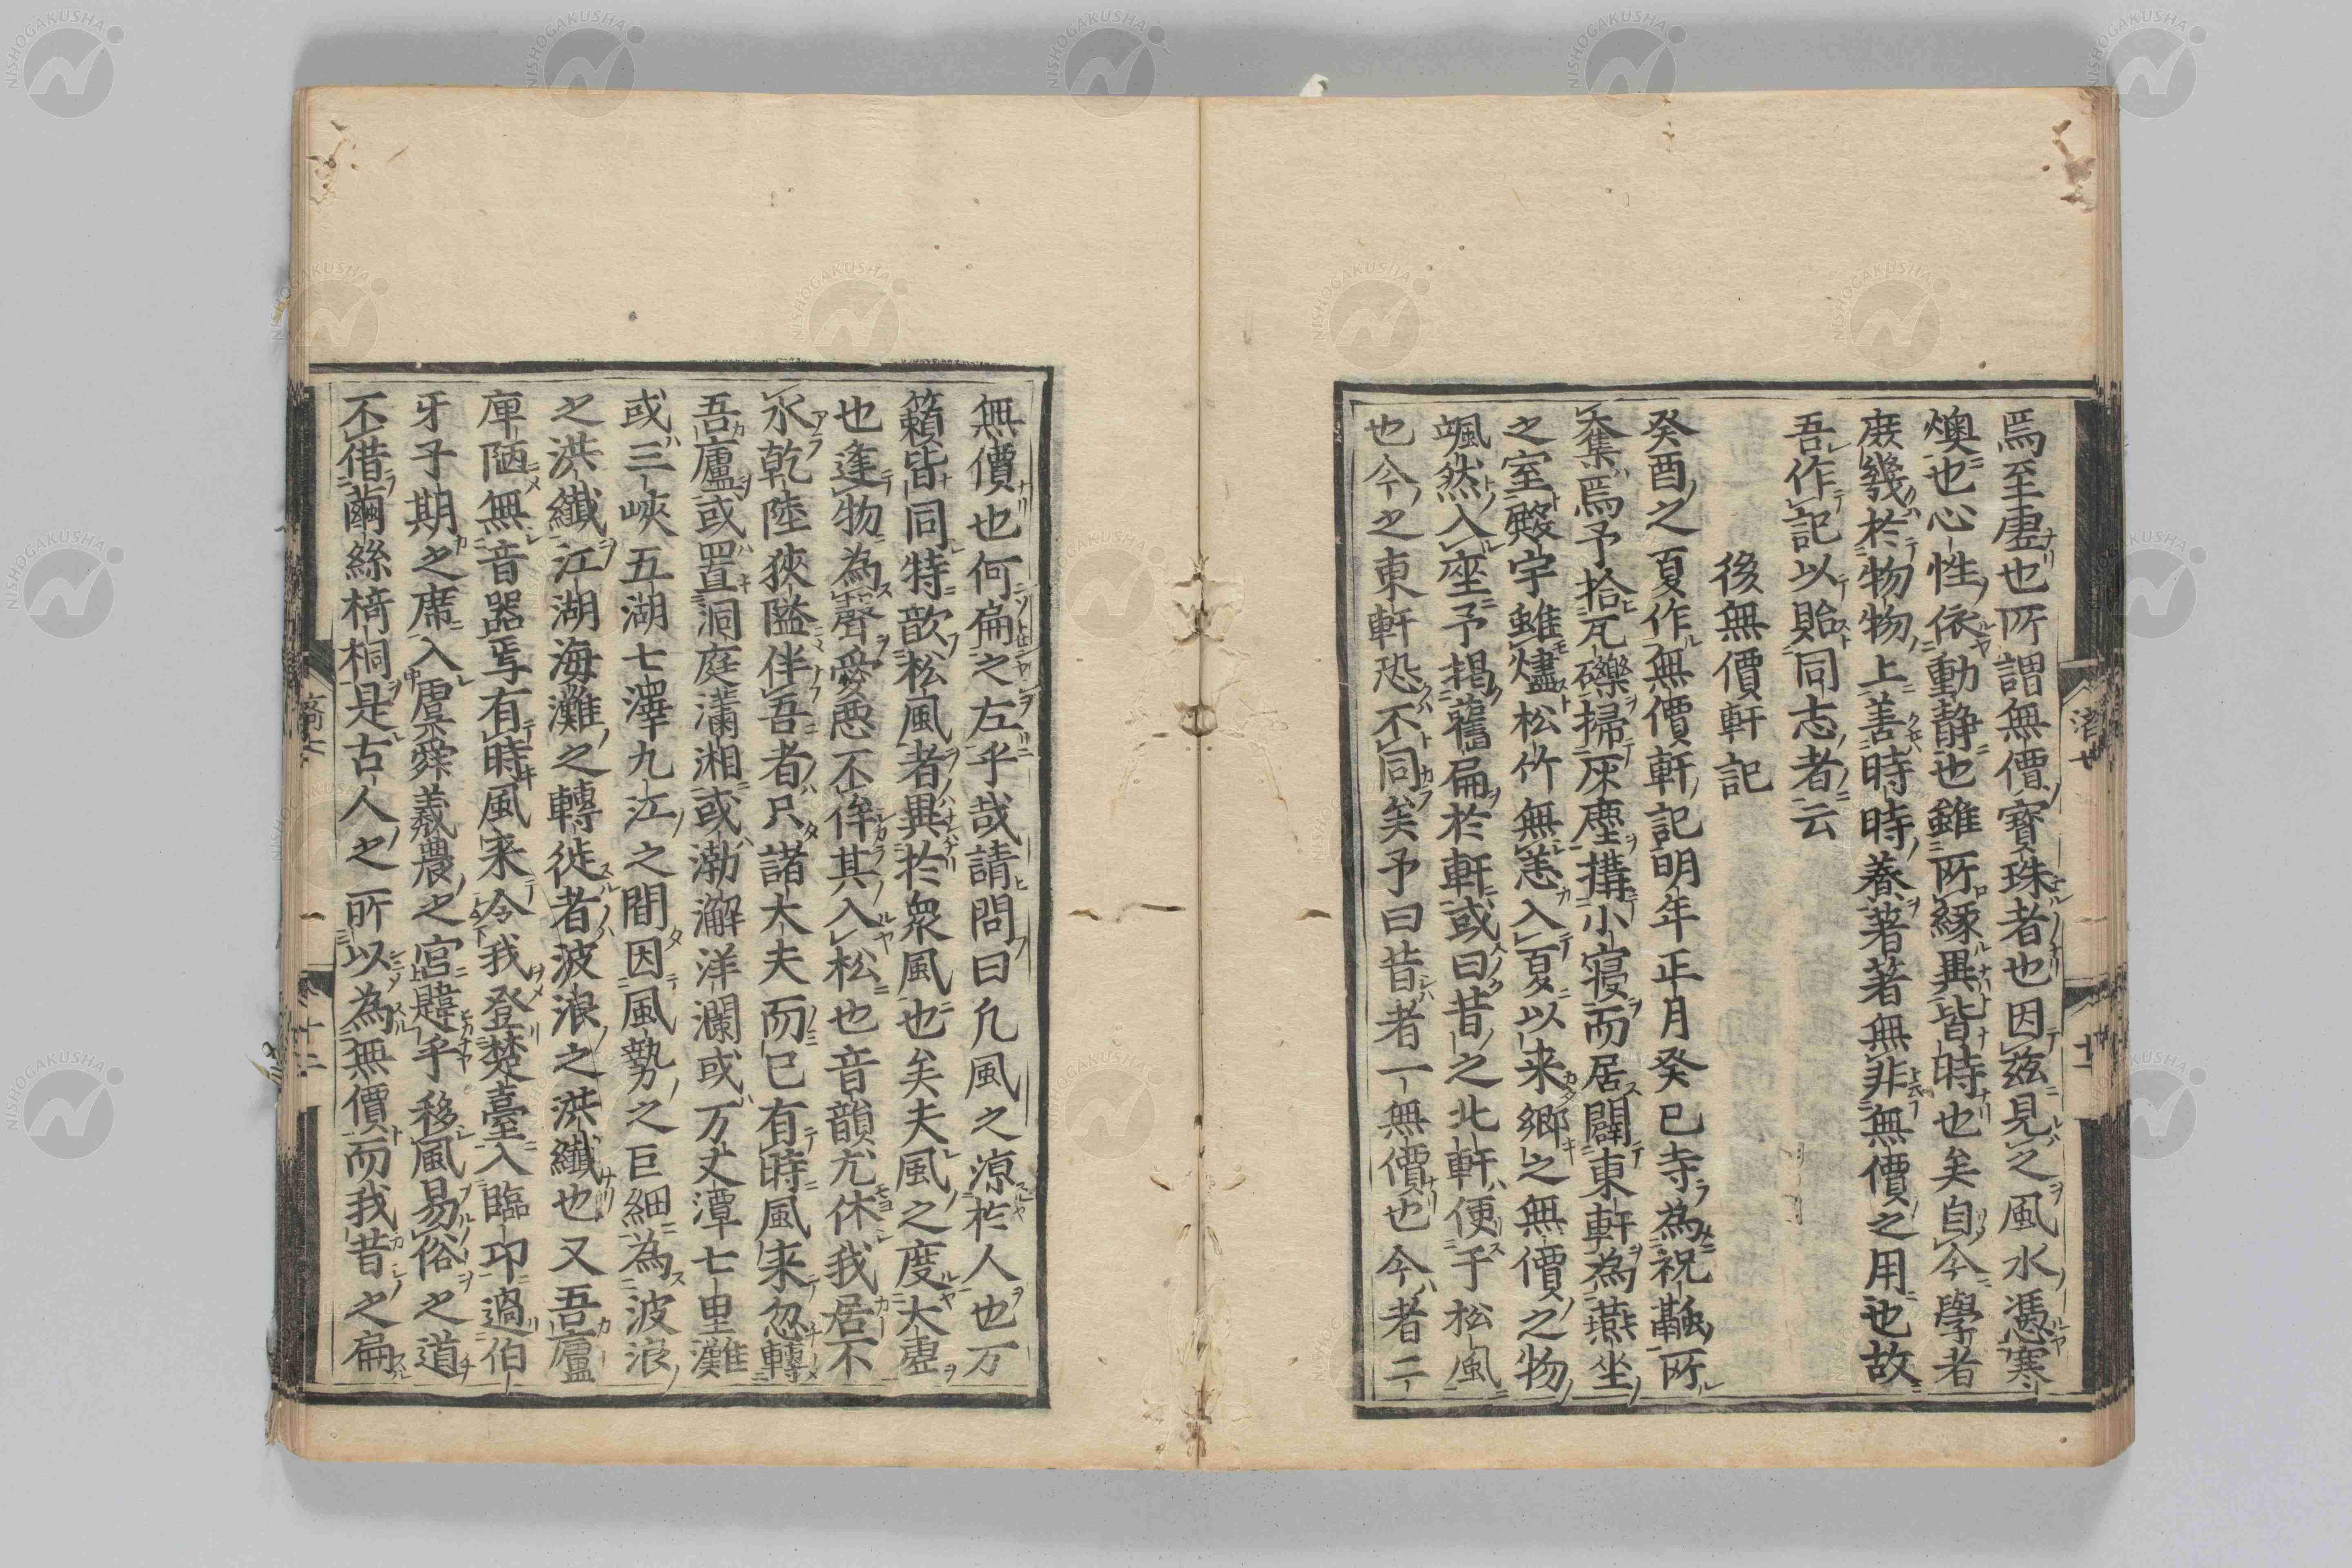 焉至虛也所謂無價寶珠者也因茲見之風水憑寒
燠也心性依動静也雖所緣異皆時也矣自今學者
庶幾於物物上善時時養著著無非無價之用也故
吾作記以貽同志者云
後無價軒記
癸酉之夏作無價軒記明年正月癸巳寺為祝融所
奪焉予拾瓦礫掃灰塵搆小寢而居闢東軒為燕坐
之室殿宇雖燼松竹無恙入夏以来郷之無價之物
颯然入座予掲舊扁於軒或曰昔之北軒便于松風
也今之東軒恐不同矣予曰昔者一無價也今者二
無價也何扁之左乎哉請問曰凡風之凉於人也万
籟皆同特歆松風者異於衆風也矣夫風之度大虛
也逢物為聲愛悪不侔其入松也音韻尤休我居不
水乾陸狹隘伴吾者只諸大夫而已有時風来忽轉
吾廬或置洞庭瀟湘或渤澥洋瀾或万丈潭七里灘
或三峽五湖七澤九江之間因風勢之巨細為波浪
之洪纖江湖海灘之轉徙者波浪之洪纖也又吾廬
庳陋無音器焉有時風来令我登楚臺入臨卭過伯
牙子期之席入虞舜羲農之宮韙乎移風易俗之道
不借繭絲椅桐是古人之所以為無價而我昔之扁
十二